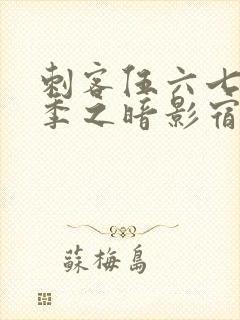 刺客伍六七
季之暗影宿
蘇梅島